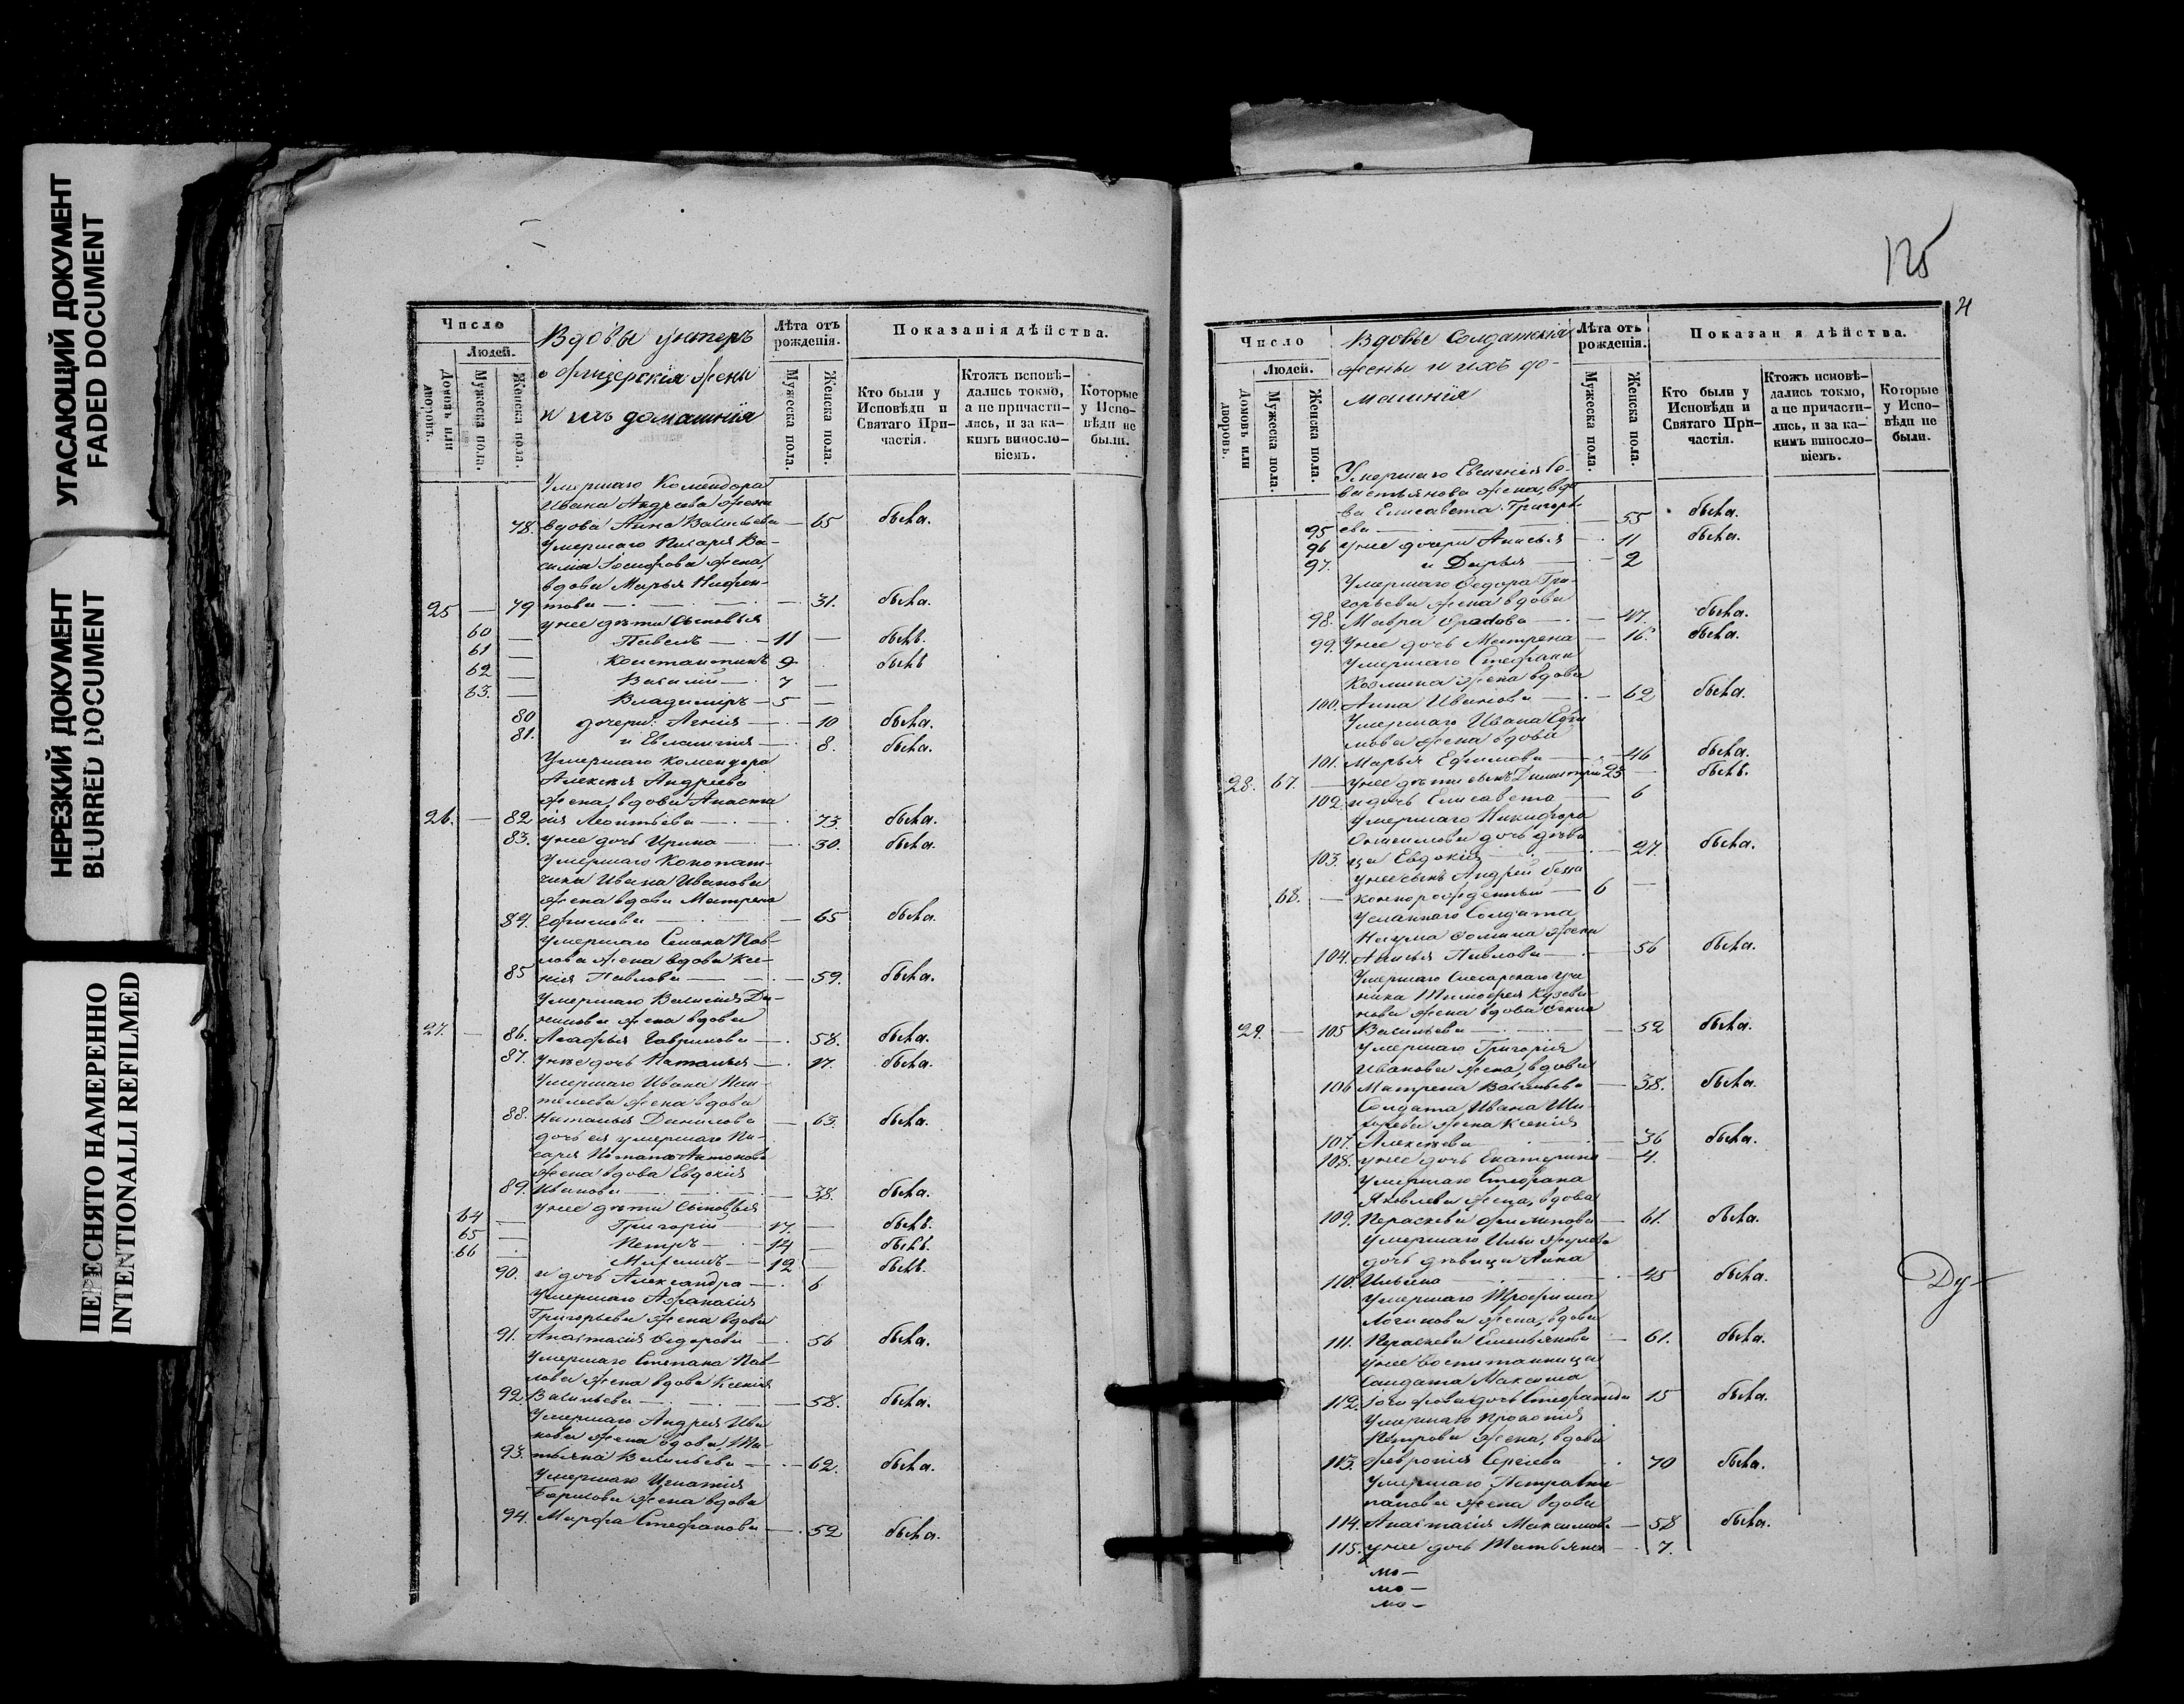 УГАСАЮЩИЙ ДОКУМЕНТ
FADED DOCUMENT
НЕРЕЗКИЙ ДОКУМЕНТ
BLURRED DOCUMENT
ПЕРЕСНЯТО НАМЕРЕННО
INTENTIONALLI REFILMED
Число
Людей.
Домовъ или дворовъ.
Мужеска пола.
Женска пола.
Вдовы унтеръ
офицерскія жены
и ихъ домашнія
Лѣта отъ рожденія.
Мужеска пола.
Женска пола.
Показанія дѣйства.
Кто были у Исповѣди и Святаго Причастія.
Ктожъ исповѣдались токмо, а не причастились, и за какимъ винословіемъ.
Которые у Исповѣди не были.
Умершаго Комендора
Ивана Андреева жена
78. вдова Анна Васильева — 65 была.
Умершаго Писаря Ва-
силія Іосифова жена,
вдова Марья Нифон-
25 — 79 това — 31. была.
унее дѣти сыновья
60 — Павелъ — 11 — былъ.
61 — Константинъ 9 былъ
62 — Василій — 7 —
63. — Владиміръ — 5 —
80 дочери: Агнія — 10 была.
81. и Евлампія — 8. была.
Умершаго комендора
Алексія Андреева
жена, вдова Анаста
26. — 82 сія Леонтьева — 73. была.
83. унее дочь Ирина — 30. была.
Умершаго Конопат-
чика Ивана Иванова
жена вдова Матрена
84. Ефимова — 65 была.
Умершаго Семена Пав-
лова жена вдова Ксе-
85 нія Павлова — 59. была.
Умершаго Василія Де-
жена вдова
27. — 86. Агафья Гаврилова — 58. была.
87. Унее дочь Наталья — 17. была.
Умершаго Ивана Пан-
телеева жена вдова
88. Наталья Данилова — 63. была.
дочь ея умершаго Пи-
саря Потапа Антонова
жена вдова Евдокія
89. Иванова — 38. была.
унее дѣти сыновья
64 — Григорій — 17. — былъ.
65 — Петръ — 14 — былъ.
66 Михаилъ — 12 — былъ.
90. и дочь Александра — 6
Умершаго Афанасія
Григорьева жена вдова
91. Анастасія Федорова — 56 была.
Умершаго Степана Пав-
лова жена вдова Ксенія
92. Васильева — 58. была.
Умершаго Андрея Ива
нова жена вдова, Та-
93. тьяна Васильева — 62. была.
Умершаго Игнатія
Борисова жена вдова
94. Марфа Стефанова — 52 была.
125
4
Число
Людей.
Домовъ или дворовъ.
Мужеска пола.
Женска пола.
Вдовы Солдатскія
жены и ихъ до-
машнія
Лѣта отъ рожденія.
Мужеска пола.
Женска пола.
Показан я дѣйства.
Кто были у Исповѣди и Святаго Причастія.
Ктожъ исповѣдались токмо, а не причастились, и за какимъ винословіемъ.
Которые у Исповѣди не были.
Умершаго Евгенія
жена, вдо
ва Елисавета Григорь
95 ева — 55 была.
96 унее дочери Анисья — 11 была.
97. и Дарья — 2
Умершаго Федора Гри-
горьева жена вдова
98. Мавра — 47. была.
99. Унее дочь Матрена — 16. была.
Умершаго Стефана
Козмина жена вдова
100. Анна Иванова — 62 была.
Умершаго Ивана Ефи
мова жена вдова
101. Марья Ефимова — 46 была.
28. 67. — унее дѣти сынъ Димитрій 23 — былъ.
102. и дочь Елисавета — 6
Умершаго Никифора
дочь дѣви
103. ца Евдокія — 27. была.
унее сынъ Андрей безза
68. — коннорожденный — 6 —
Солдата
Наума жена
104. Анисья Павлова — 56 была.
Умершаго Слесарнаго уче
ника Тимофея
жена вдова
29. — 105 Васильева — 52 была.
Умершаго Григорія
Иванова жена, вдова
106 Матрена Васильева — 38. была.
Солдата Ивана
жена Ксенія
107. Алексѣева — 36 была.
108. унее дочь Екатерина — 4.
Умершаго Стефана
Яковлева жена, вдова
109. Параскева Филипова — 61. была.
Умершаго Ильи
дочь дѣвица Анна
110. Ильина — 45 была.
Умершаго Трофима
Логинова жена, вдова
111. Параскева Емельянова — 61. была.
унее воспитанница
Солдата Максима
112. дочь Стефанида 15 была.
Умершаго Прокопія
Петрова жена, вдова
113. Февронія Сергѣева 70 была.
Умершаго Петра
жена вдова
114. Анастасія Максимова — 58 была.
115. унее дочь Татьяна — 7.
мо—
мо—
мо—
Ду—